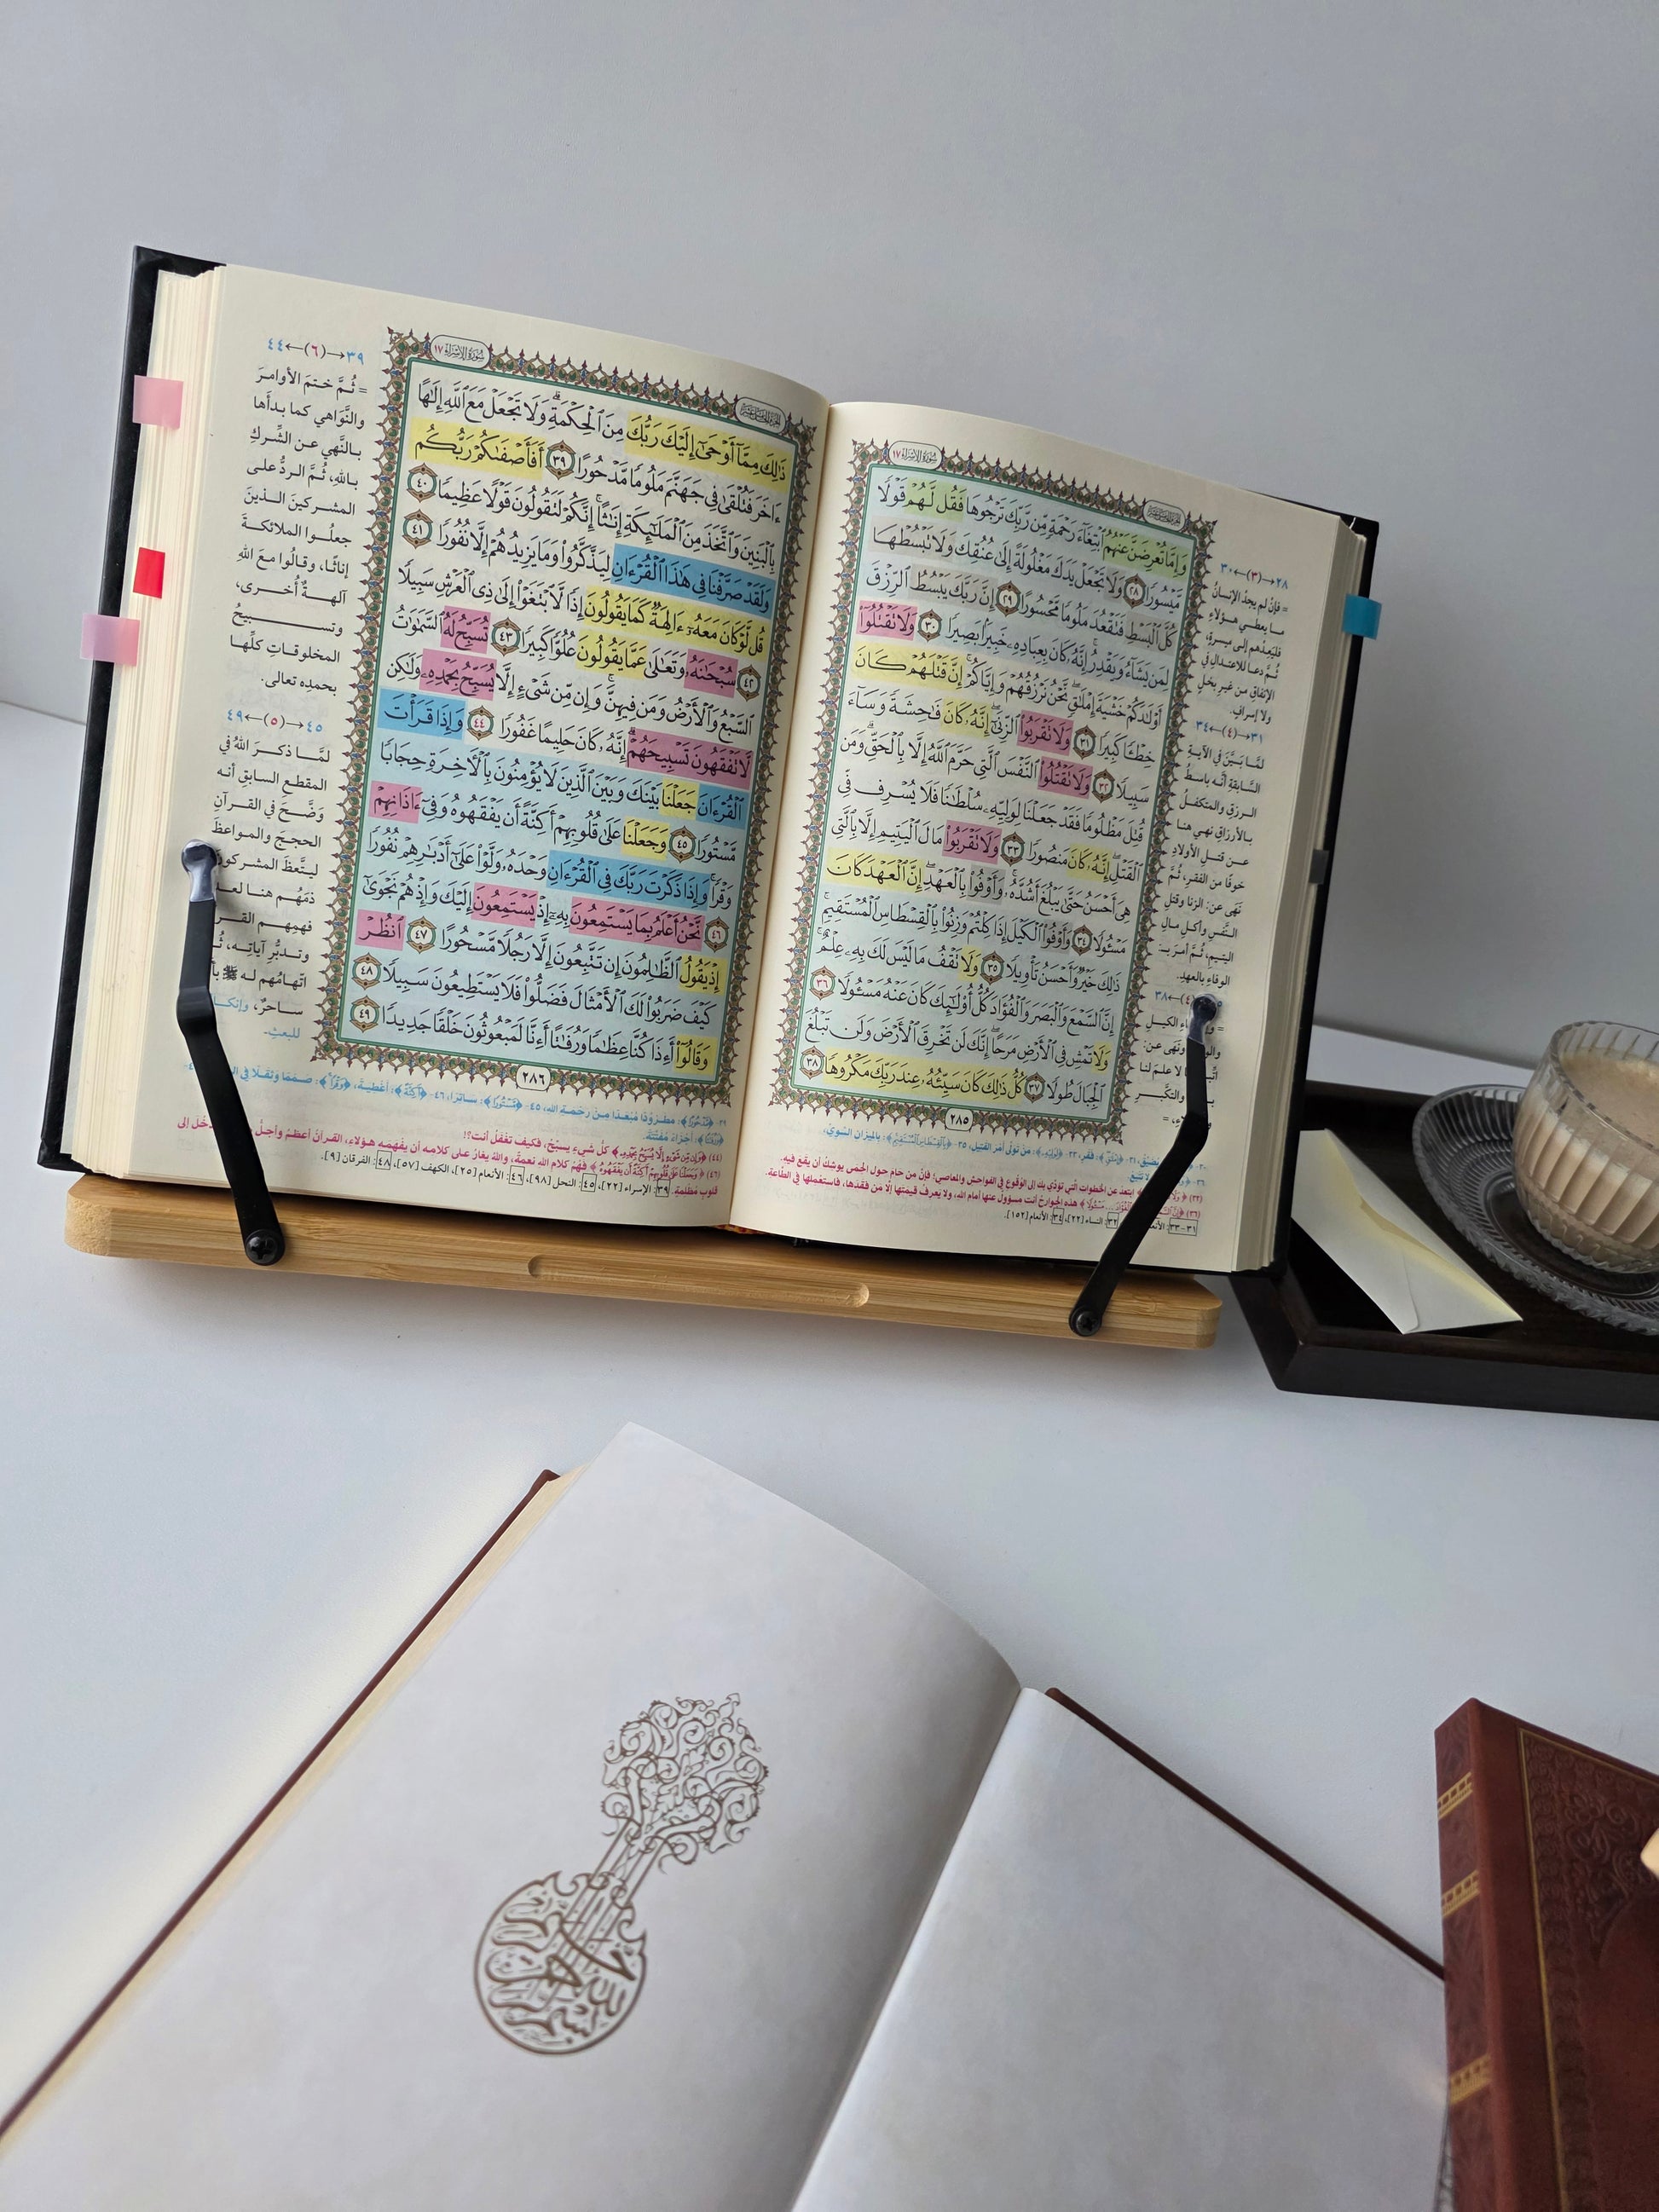 سُورَةُ الإِسْرَاءِ ١٧
وَإِمَّا تُعْرِضَنَّ عَنْهُمُ ٱبْتِغَآءَ رَحْمَةٍ مِّن رَّبِّكَ تَرْجُوهَا فَقُل لَّهُمْ قَوْلًا
مَّيْسُورًا ٢٨ وَلَا تَجْعَلْ يَدَكَ مَغْلُولَةً إِلَىٰ عُنُقِكَ وَلَا تَبْسُطْهَا
كُلَّ ٱلْبَسْطِ فَتَقْعُدَ مَلُومًا مَّحْسُورًا ٢٩ إِنَّ رَبَّكَ يَبْسُطُ ٱلرِّزْقَ
لِمَن يَشَآءُ وَيَقْدِرُ إِنَّهُۥ كَانَ بِعِبَادِهِۦ خَبِيرًۢا بَصِيرًا ٣٠ وَلَا تَقْتُلُوٓا۟
أَوْلَٰدَكُمْ خَشْيَةَ إِمْلَٰقٍ ۖ نَّحْنُ نَرْزُقُهُمْ وَإِيَّاكُمْ ۚ إِنَّ قَتْلَهُمْ كَانَ
خِطْـًٔا كَبِيرًا ٣١ وَلَا تَقْرَبُوا۟ ٱلزِّنَىٰٓ ۖ إِنَّهُۥ كَانَ فَٰحِشَةً وَسَآءَ
سَبِيلًا ٣٢ وَلَا تَقْتُلُوا۟ ٱلنَّفْسَ ٱلَّتِى حَرَّمَ ٱللَّهُ إِلَّا بِٱلْحَقِّ ۗ وَمَن
قُتِلَ مَظْلُومًا فَقَدْ جَعَلْنَا لِوَلِيِّهِۦ سُلْطَٰنًا فَلَا يُسْرِف فِّى
ٱلْقَتْلِ ۖ إِنَّهُۥ كَانَ مَنصُورًا ٣٣ وَلَا تَقْرَبُوا۟ مَالَ ٱلْيَتِيمِ إِلَّا بِٱلَّتِى
هِىَ أَحْسَنُ حَتَّىٰ يَبْلُغَ أَشُدَّهُۥ ۚ وَأَوْفُوا۟ بِٱلْعَهْدِ ۖ إِنَّ ٱلْعَهْدَ كَانَ
مَسْـُٔولًا ٣٤ وَأَوْفُوا۟ ٱلْكَيْلَ إِذَا كِلْتُمْ وَزِنُوا۟ بِٱلْقِسْطَاسِ ٱلْمُسْتَقِيمِ ۚ
ذَٰلِكَ خَيْرٌ وَأَحْسَنُ تَأْوِيلًا ٣٥ وَلَا تَقْفُ مَا لَيْسَ لَكَ بِهِۦ عِلْمٌ ۚ
إِنَّ ٱلسَّمْعَ وَٱلْبَصَرَ وَٱلْفُؤَادَ كُلُّ أُو۟لَٰٓئِكَ كَانَ عَنْهُ مَسْـُٔولًا ٣٦
وَلَا تَمْشِ فِى ٱلْأَرْضِ مَرَحًا ۖ إِنَّكَ لَن تَخْرِقَ ٱلْأَرْضَ وَلَن تَبْلُغَ
ٱلْجِبَالَ طُولًا ٣٧ كُلُّ ذَٰلِكَ كَانَ سَيِّئُهُۥ عِندَ رَبِّكَ مَكْرُوهًا ٣٨
٢٨→(٣)←٣٠
= فإنْ لم يجدْ الإنسانُ
ما يعطي هؤلاءِ
فليَعِدْهم إلى ميسرةٍ،
ثُمَّ دعا للاعتدالِ في
الإنفاقِ من غيرِ بخلٍ
ولا إسرافٍ.
٣١→(٤)←٣٤
لمَّا بيَّنَ في الآيةِ
السَّابقةِ أنَّه باسطُ
الرزقِ والمتكفلُ
بالأرزاقِ نهى هنا
عن قتلِ الأولادِ
خوفًا من الفقرِ، ثُمَّ
نَهَى عن: الزنا وقتلِ
النَّفسِ وأكلِ مالِ
اليتيمِ، ثُمَّ أمرَ بـ:
الوفاءِ بالعهدِ.
٢٨٥
سُورَةُ الإِسْرَاءِ ١٧
ذَٰلِكَ مِمَّآ أَوْحَىٰٓ إِلَيْكَ رَبُّكَ مِنَ ٱلْحِكْمَةِ ۗ وَلَا تَجْعَلْ مَعَ ٱللَّهِ إِلَٰهًا
ءَاخَرَ فَتُلْقَىٰ فِى جَهَنَّمَ مَلُومًا مَّدْحُورًا ٣٩ أَفَأَصْفَىٰكُمْ رَبُّكُم
بِٱلْبَنِينَ وَٱتَّخَذَ مِنَ ٱلْمَلَٰٓئِكَةِ إِنَٰثًا ۚ إِنَّكُمْ لَتَقُولُونَ قَوْلًا عَظِيمًا ٤٠
وَلَقَدْ صَرَّفْنَا فِى هَٰذَا ٱلْقُرْءَانِ لِيَذَّكَّرُوا۟ وَمَا يَزِيدُهُمْ إِلَّا نُفُورًا ٤١
قُل لَّوْ كَانَ مَعَهُۥٓ ءَالِهَةٌ كَمَا يَقُولُونَ إِذًا لَّٱبْتَغَوْا۟ إِلَىٰ ذِى ٱلْعَرْشِ سَبِيلًا
٤٢ سُبْحَٰنَهُۥ وَتَعَٰلَىٰ عَمَّا يَقُولُونَ عُلُوًّا كَبِيرًا ٤٣ تُسَبِّحُ لَهُ ٱلسَّمَٰوَٰتُ
ٱلسَّبْعُ وَٱلْأَرْضُ وَمَن فِيهِنَّ ۚ وَإِن مِّن شَىْءٍ إِلَّا يُسَبِّحُ بِحَمْدِهِۦ وَلَٰكِن
لَّا تَفْقَهُونَ تَسْبِيحَهُمْ ۗ إِنَّهُۥ كَانَ حَلِيمًا غَفُورًا ٤٤ وَإِذَا قَرَأْتَ
ٱلْقُرْءَانَ جَعَلْنَا بَيْنَكَ وَبَيْنَ ٱلَّذِينَ لَا يُؤْمِنُونَ بِٱلْءَاخِرَةِ حِجَابًا
مَّسْتُورًا ٤٥ وَجَعَلْنَا عَلَىٰ قُلُوبِهِمْ أَكِنَّةً أَن يَفْقَهُوهُ وَفِىٓ ءَاذَانِهِمْ
وَقْرًا ۚ وَإِذَا ذَكَرْتَ رَبَّكَ فِى ٱلْقُرْءَانِ وَحْدَهُۥ وَلَّوْا۟ عَلَىٰٓ أَدْبَٰرِهِمْ نُفُورًا
٤٦ نَّحْنُ أَعْلَمُ بِمَا يَسْتَمِعُونَ بِهِۦٓ إِذْ يَسْتَمِعُونَ إِلَيْكَ وَإِذْ هُمْ نَجْوَىٰٓ
إِذْ يَقُولُ ٱلظَّٰلِمُونَ إِن تَتَّبِعُونَ إِلَّا رَجُلًا مَّسْحُورًا ٤٧ ٱنظُرْ
كَيْفَ ضَرَبُوا۟ لَكَ ٱلْأَمْثَالَ فَضَلُّوا۟ فَلَا يَسْتَطِيعُونَ سَبِيلًا ٤٨
وَقَالُوٓا۟ أَءِذَا كُنَّا عِظَٰمًا وَرُفَٰتًا أَءِنَّا لَمَبْعُوثُونَ خَلْقًا جَدِيدًا ٤٩
٢٨٦
٣٩→(٦)←٤٤
= ثُمَّ ختمَ الأوامرَ
والنَّواهي كما بدأَها
بالنَّهي عن الشِّركِ
باللهِ، ثُمَّ الردُّ على
المشركينَ الذينَ
جعلُوا الملائكةَ
إناثًا، وقالُوا معَ اللهِ
آلهةٌ أُخرى،
وتسبيحُ
المخلوقاتِ كلِّها
بحمدِه تعالى.
٤٥→(٥)←٤٩
لمَّا ذكرَ اللهُ في
المقطعِ السابقِ أنه
وَضَّحَ في القرآنِ
الحججَ والمواعظَ
ليتَّعظَ المشركون
ذمَّهُم هنا لعد
فهمِهم القر
وتدبُّرِ آياتِه، ثُ
اتهامُهم له ﷺ بأ
ساحرٌ، وإنكا
للبعثِ.